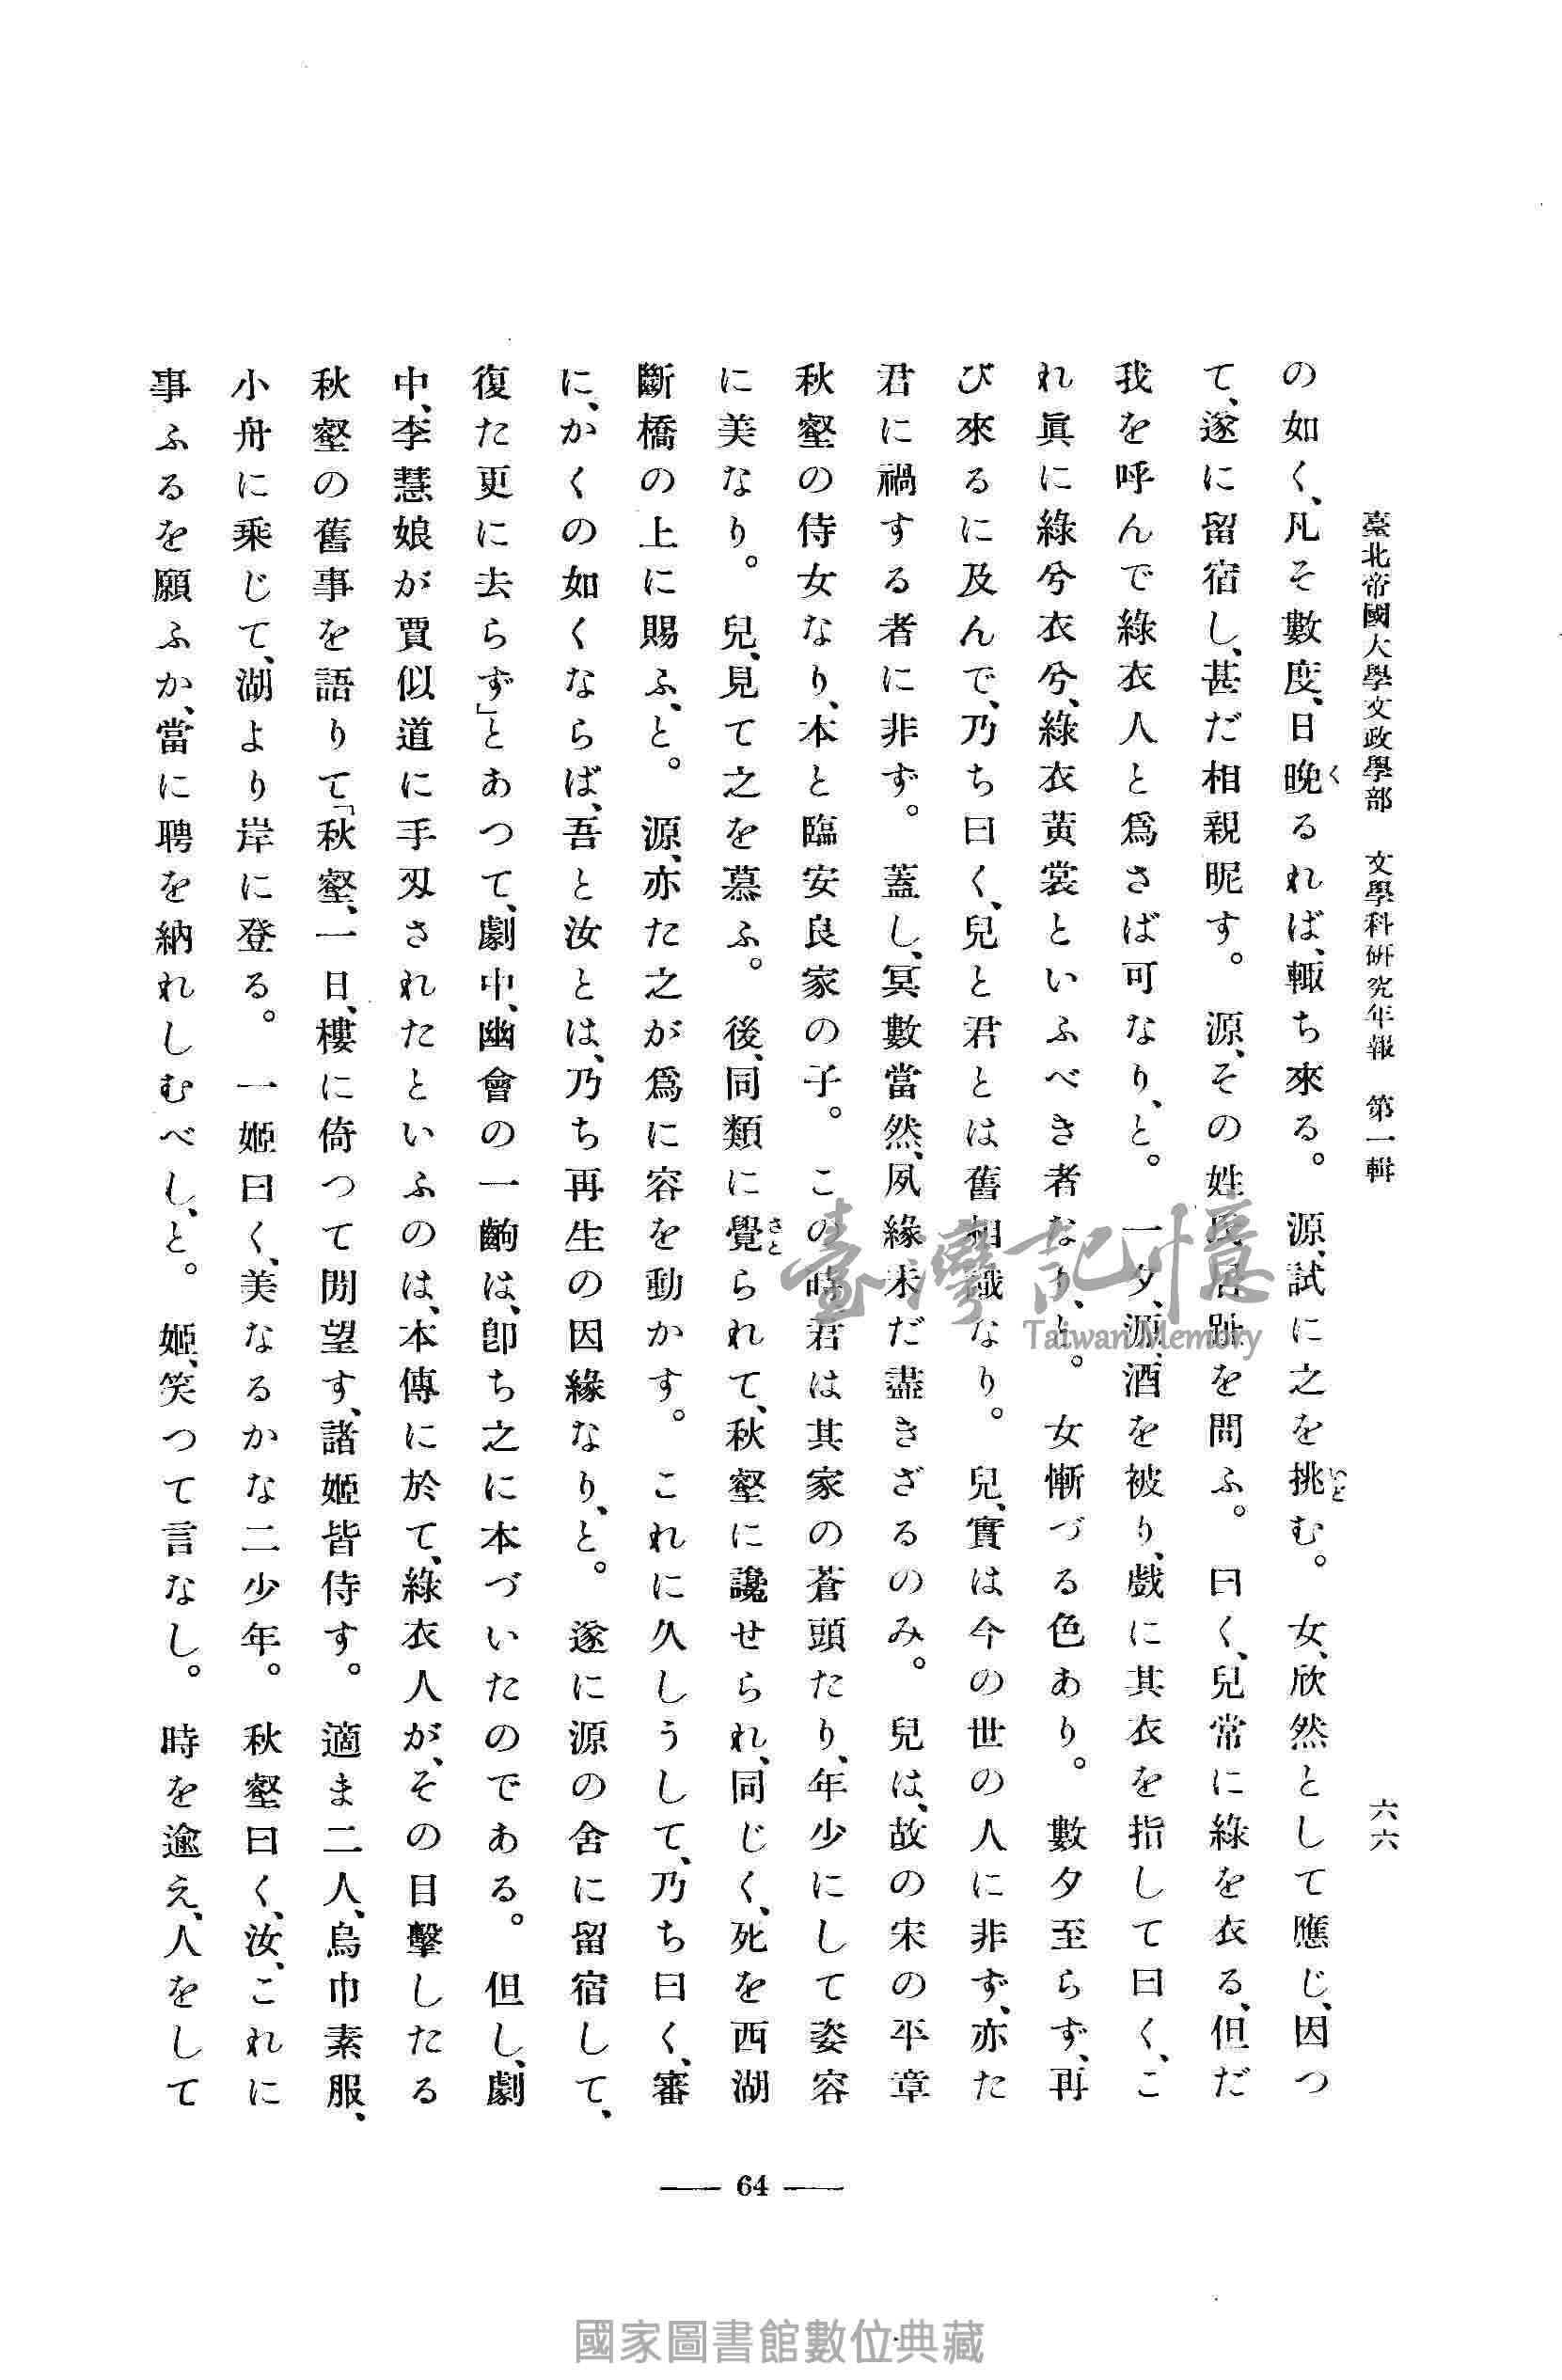 臺北帝國大學文政學部　文學科研究年報　第一輯
六六
の如く、凡そ數度、日晩るれば、輙ち來る。　源、試に之を挑む。　女、欣然として應じ、因つ
て、遂に留宿し、甚だ相親昵す。　源、その姓氏居趾を問ふ。　曰く、兒常に綠を衣る、但だ
我を呼んで綠衣人と爲さば可なり、と。　一夕、源、酒を被り、戲に其衣を指して曰く、こ
れ眞に綠兮衣兮、綠衣黃裳といふべき者なり、と。　女慚づる色あり。　數夕至らず、再
び來るに及んで、乃ち曰く、兒と君とは舊相識なり。　兒、實は今の世の人に非ず、亦た
君に禍する者に非ず。　蓋し、冥數當然、夙緣未だ盡きざるのみ。　兒は、故の宋の平章
秋壑の侍女なり、本と臨安良家の子。　この時君は其家の蒼頭たり、年少にして姿容
に美なり。　兒、見て之を慕ふ。　後、同類に覺られて、秋壑に讒せられ、同じく、死を西湖
斷橋の上に賜ふ、と。　源、亦た之が爲に容を動かす。　これに久しうして、乃ち曰く、審
に、かくの如くならば、吾と汝とは、乃ち再生の因緣なり、と。　遂に源の舍に留宿して、
復た更に去らず」とあつて、劇中、幽會の一齣は、卽ち之に本づいたのである。　但し、劇
中、李慧娘が賈似道に手刄されたといふのは、本傳に於て、綠衣人が、その目擊したる
秋壑の舊事を語りて「秋壑、一日、樓に倚つて閒望す、諸姬皆侍す。　適ま二人、烏巾素服、
小舟に乘じて、湖より岸に登る。　一姬曰く、美なるかな二少年。　秋壑曰く、汝、これに
事ふるを願ふか、當に聘を納れしむべし、と。　姬、笑つて言なし。　時を逾え、人をして
く
いど
さと
— 64 —
臺灣記憶
Taiwan Memory
國家圖書館數位典藏